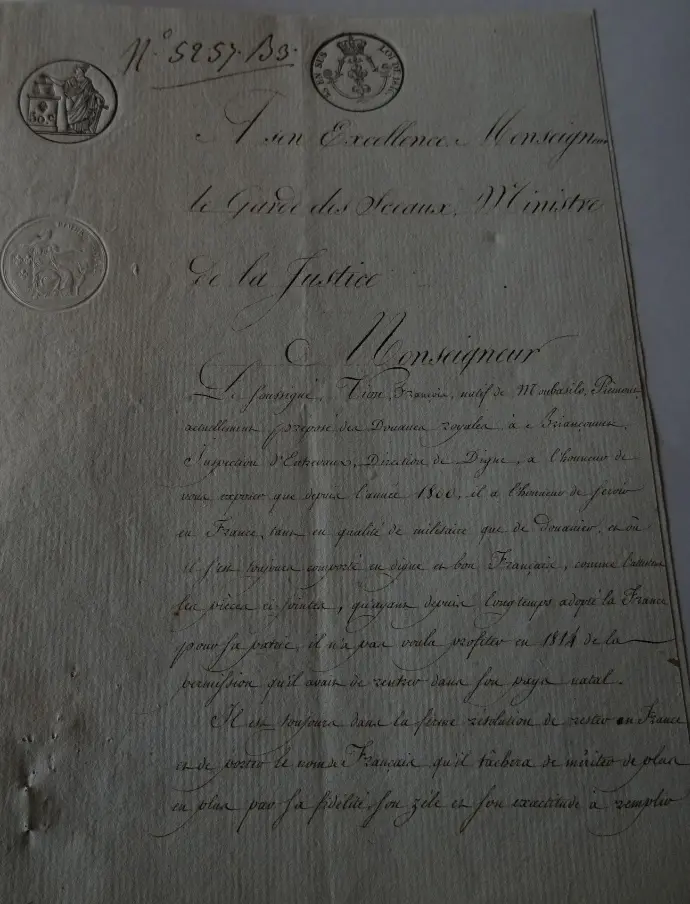 N° 5257. B3.
50 c
EN SUS
LOI DE 1816
A son Excellence Monseigneur
le Garde des Sceaux, Ministre
de la Justice
Monseigneur
Le soussigné, Tion, François, natif de Piémont
actuellement préposé des Douanes royales à Briançonnet,
Inspection d'Entrevaux, Direction de Digne, a l'honneur de
vous exposer que depuis l'année 1800, il a l'honneur de servir
en France, tant en qualité de militaire que de douanier, et où
il s'est toujours comporté en digne et bon Français, comme l'attestent
les pièces ci-jointes, qu'ayant depuis longtemps adopté la France
pour sa patrie, il n'a pas voulu profiter en 1814 de la
permission qu'il avait de rentrer dans son pays natal.
Il est toujours dans la ferme résolution de rester en France
et de porter le nom de Français qu'il tâchera de mériter de plus
en plus par sa fidélité, son zèle et son exactitude à remplir